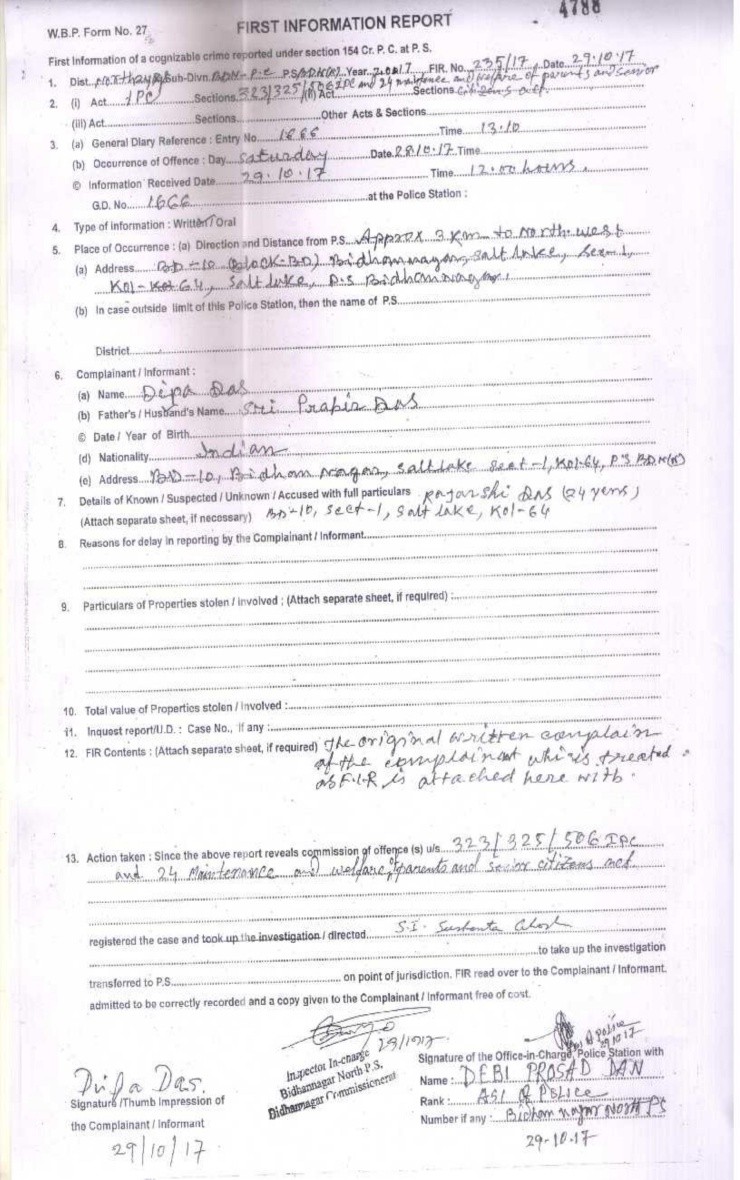 4788
W.B.P. Form No. 27
FIRST INFORMATION REPORT
First Information of a cognizable crime reported under section 154 Cr. P. C. at P. S.
1. Dist. Sub-Divn. BDN P.C P.S BDN(N) Year 2017 FIR. No. 235/17 Date 29.10.17
2. (i) Act IPC Sections 323/325/506 IPC and 24 maintenance and welfare of parents and senior citizens act. (ii) Act Sections
(iii) Act Sections Other Acts & Sections
3. (a) General Diary Reference : Entry No. 1666 Time 13.10
(b) Occurrence of Offence : Day Saturday Date 28.10.17 Time
© Information Received Date 29.10.17 Time 12.00 hours.
G.D. No. 1666 at the Police Station :
4. Type of information : Written / Oral
5. Place of Occurrence : (a) Direction and Distance from P.S. Approx 3 Km to North-west
(a) Address BD-10 (Block-BD) Bidhannagar, Salt Lake, Sec-1,
Kol-64, Salt Lake, P.S Bidhannagar,
(b) In case outside limit of this Police Station, then the name of P.S.
District
6. Complainant / Informant :
(a) Name Dipa Das
(b) Father's / Husband's Name Sri Prabir Das
© Date / Year of Birth
(d) Nationality Indian
(e) Address BD-10, Bidhan nagar, Salt Lake Sect-1, Kol-64, P.S BDN(N)
7. Details of Known / Suspected / Unknown / Accused with full particulars Rajarshi Das (24 yens)
(Attach separate sheet, if necessary) BD-10, Sect-1, Salt Lake, Kol-64
8. Reasons for delay in reporting by the Complainant / Informant
9. Particulars of Properties stolen / involved ; (Attach separate sheet, if required) :
10. Total value of Properties stolen / involved :
11. Inquest report/U.D. : Case No., If any :
12. FIR Contents : (Attach separate sheet, if required) The original written complain
of the complainant whic is treated
as F.I.R is attached here with.
13. Action taken : Since the above report reveals commission of offence (s) u/s 323/325/506 IPC
and 24 Maintenance and welfare of parents and senior citizens act
registered the case and took up the investigation / directed S.I. Sushanta Ghosh
to take up the investigation
transferred to P.S. on point of jurisdiction. FIR read over to the Complainant / Informant.
admitted to be correctly recorded and a copy given to the Complainant / Informant free of cost.
29/10/17
Inspector In-charge
Bidhannagar North P.S.
Bidhannagar Commissionerat
ASI of Police
29.10.17
Signature of the Office-in-Charge, Police Station with
Name : DEBI PROSAD DAN
Rank : ASI of Police
Number if any : Bidhan nagar North PS
29-10-17
Dipa Das.
Signature /Thumb Impression of
the Complainant / Informant
29/10/17